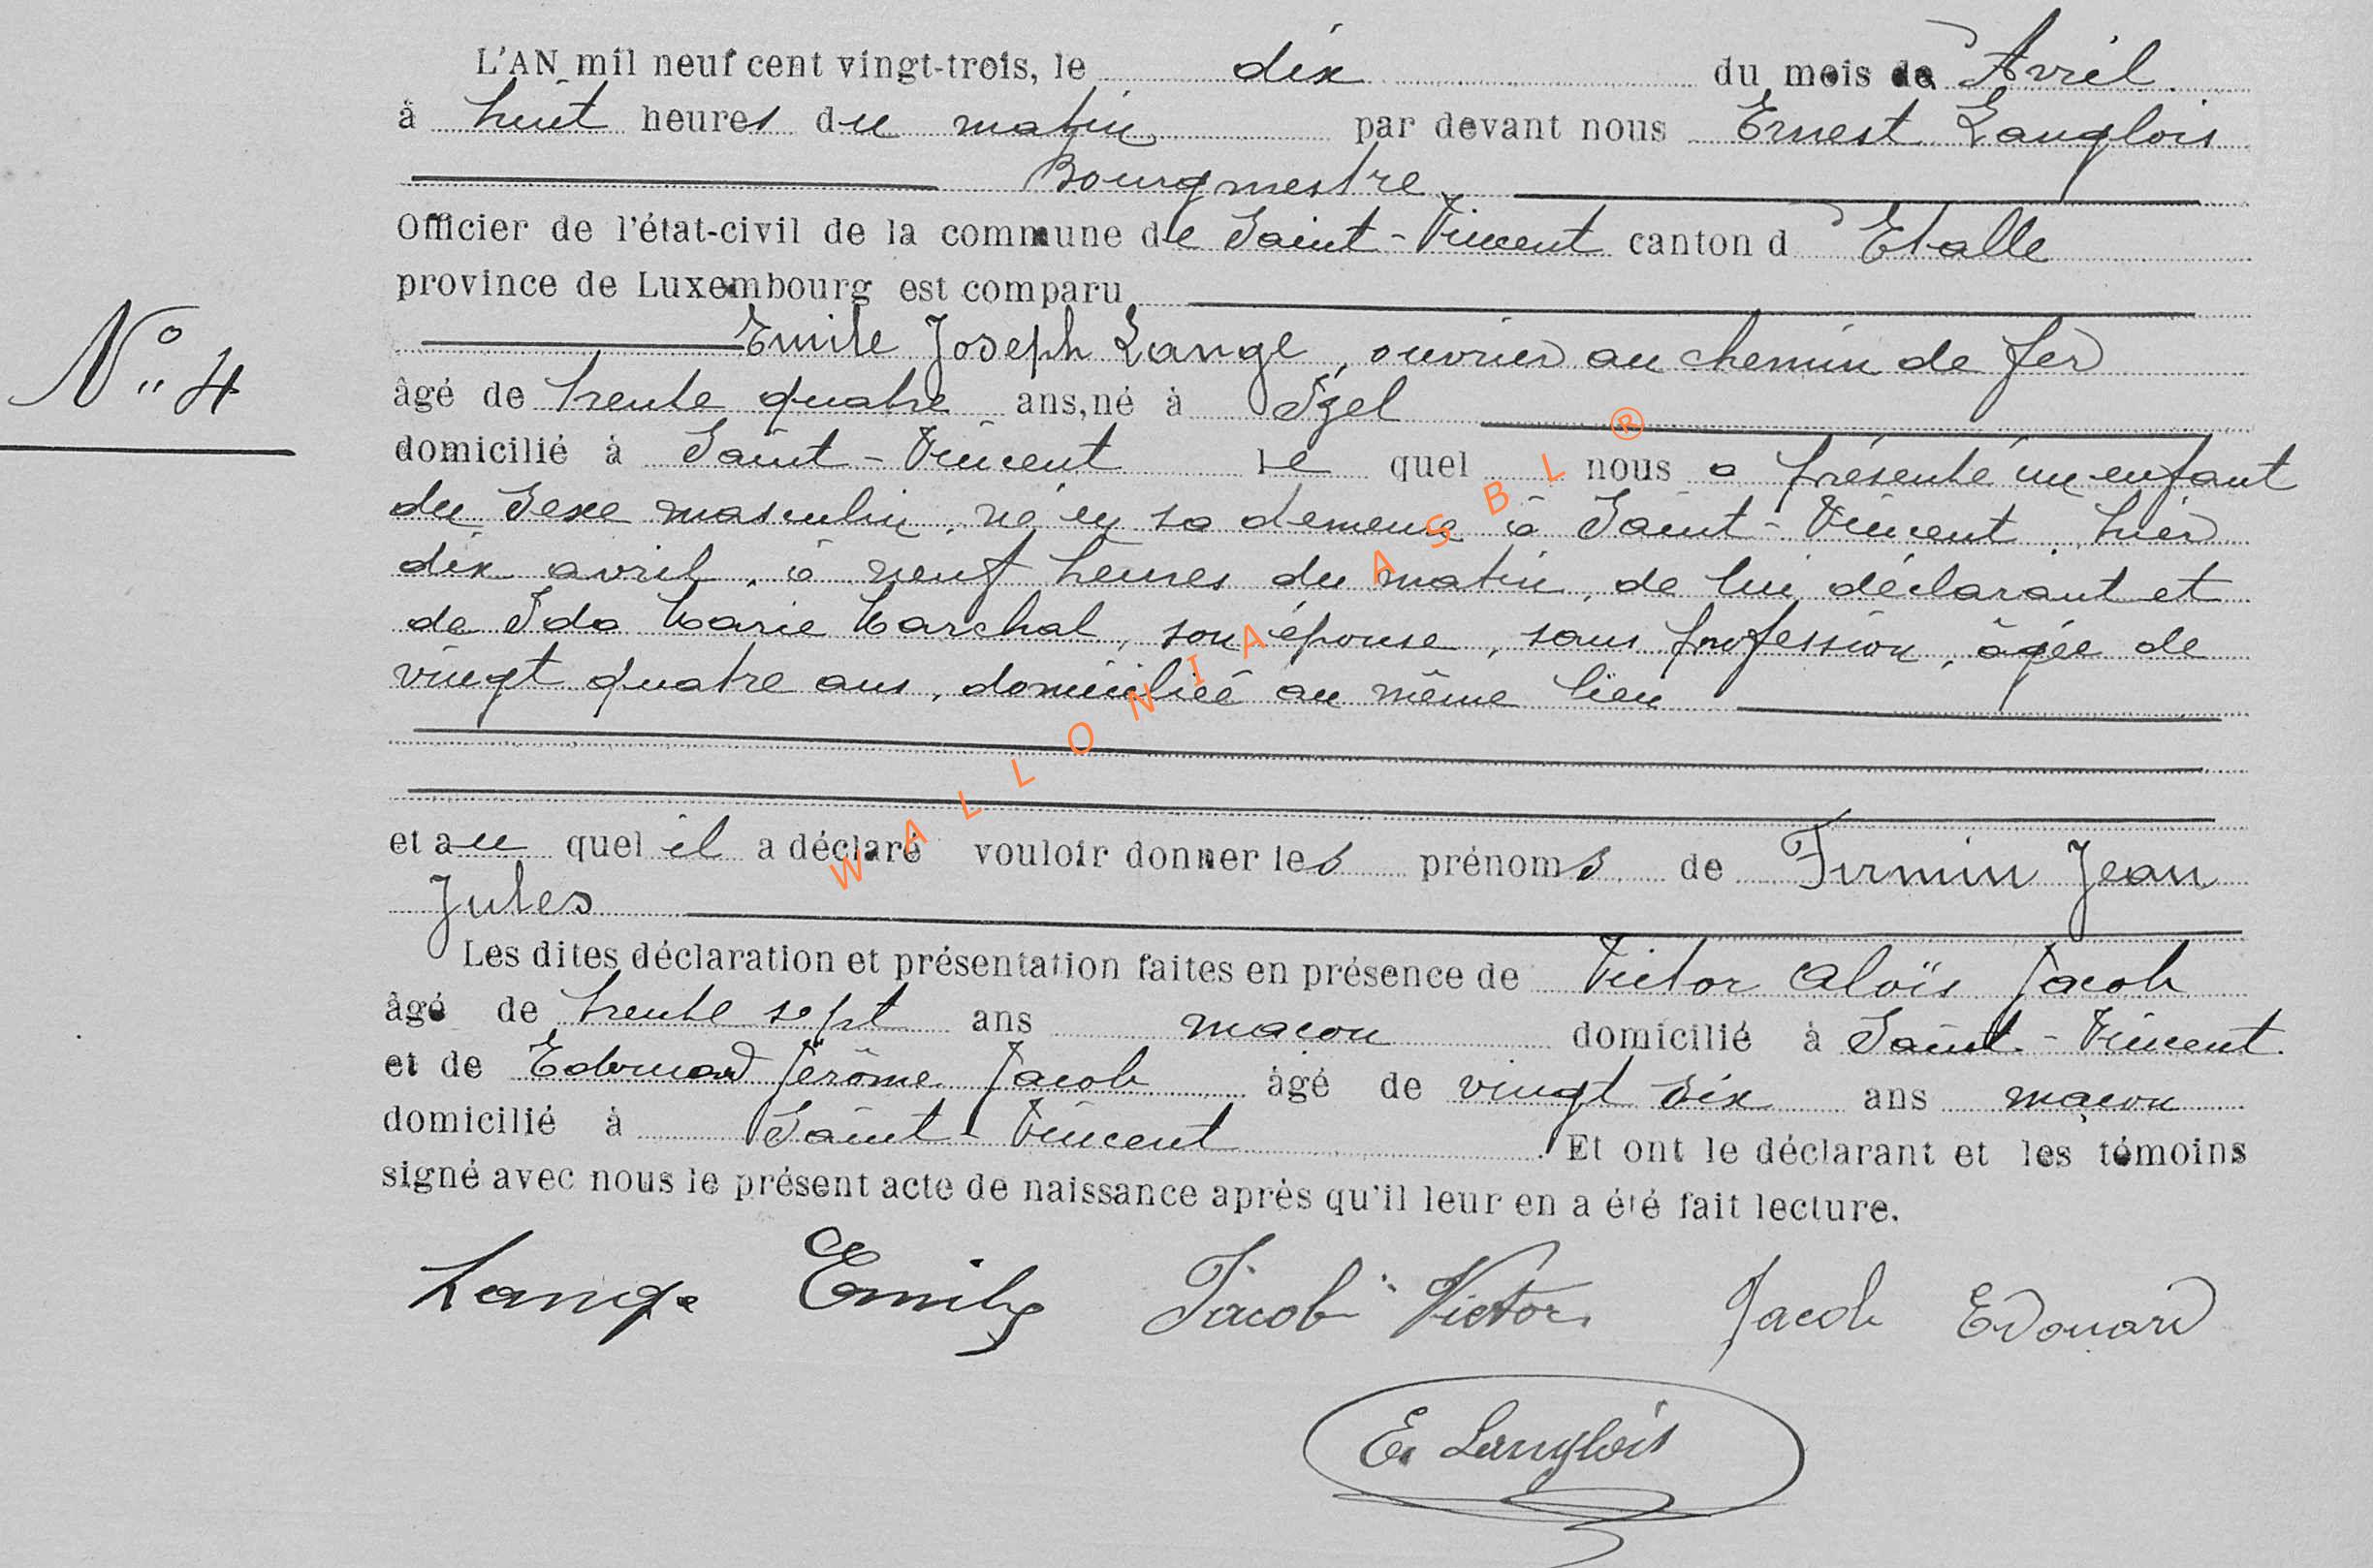 L'AN mil neuf cent vingt-trois, le dix du mois de Avril
à huit heures du matin par devant nous Ernest Langlois
Bourgmestre
Officier de l'état-civil de la commune de Saint-Vincent canton d'Etalle
province de Luxembourg est comparu
N° 4
Emile Joseph Lange, ouvrier au chemin de fer
âgé de trente quatre ans, né à Izel
domicilié à Saint-Vincent le quel nous a présenté un enfant
du sexe masculin, né en sa demeure à Saint-Vincent, hier
dix avril, à neuf heures du matin, de lui déclarant et
de Ida Marie Marchal, son épouse, sans profession, âgée de
vingt quatre ans, domiciliée au même lieu
et au quel il a déclaré vouloir donner les prénoms de Firmin Jean
Jules
Les dites déclaration et présentation faites en présence de Victor Aloïs Jacob
âgé de trente sept ans maçon domicilié à Saint-Vincent.
et de Edouard Jérôme Jacob âgé de vingt six ans maçon
domicilié à Saint-Vincent. Et ont le déclarant et les témoins
signé avec nous le présent acte de naissance après qu'il leur en a été fait lecture.
Lange Emile Jacob Victor Jacob Edouard
E. Langlois
WALLONIA ASBL ®